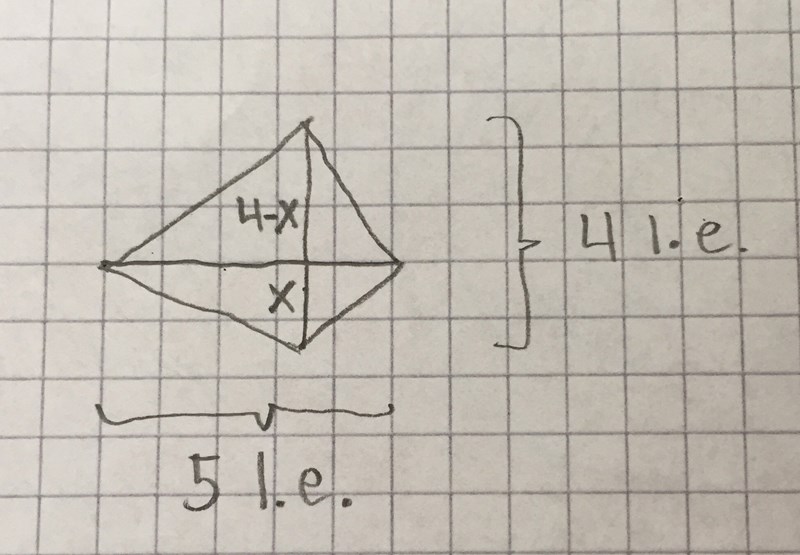 4-x
4 l.e.
x
5 l.e.